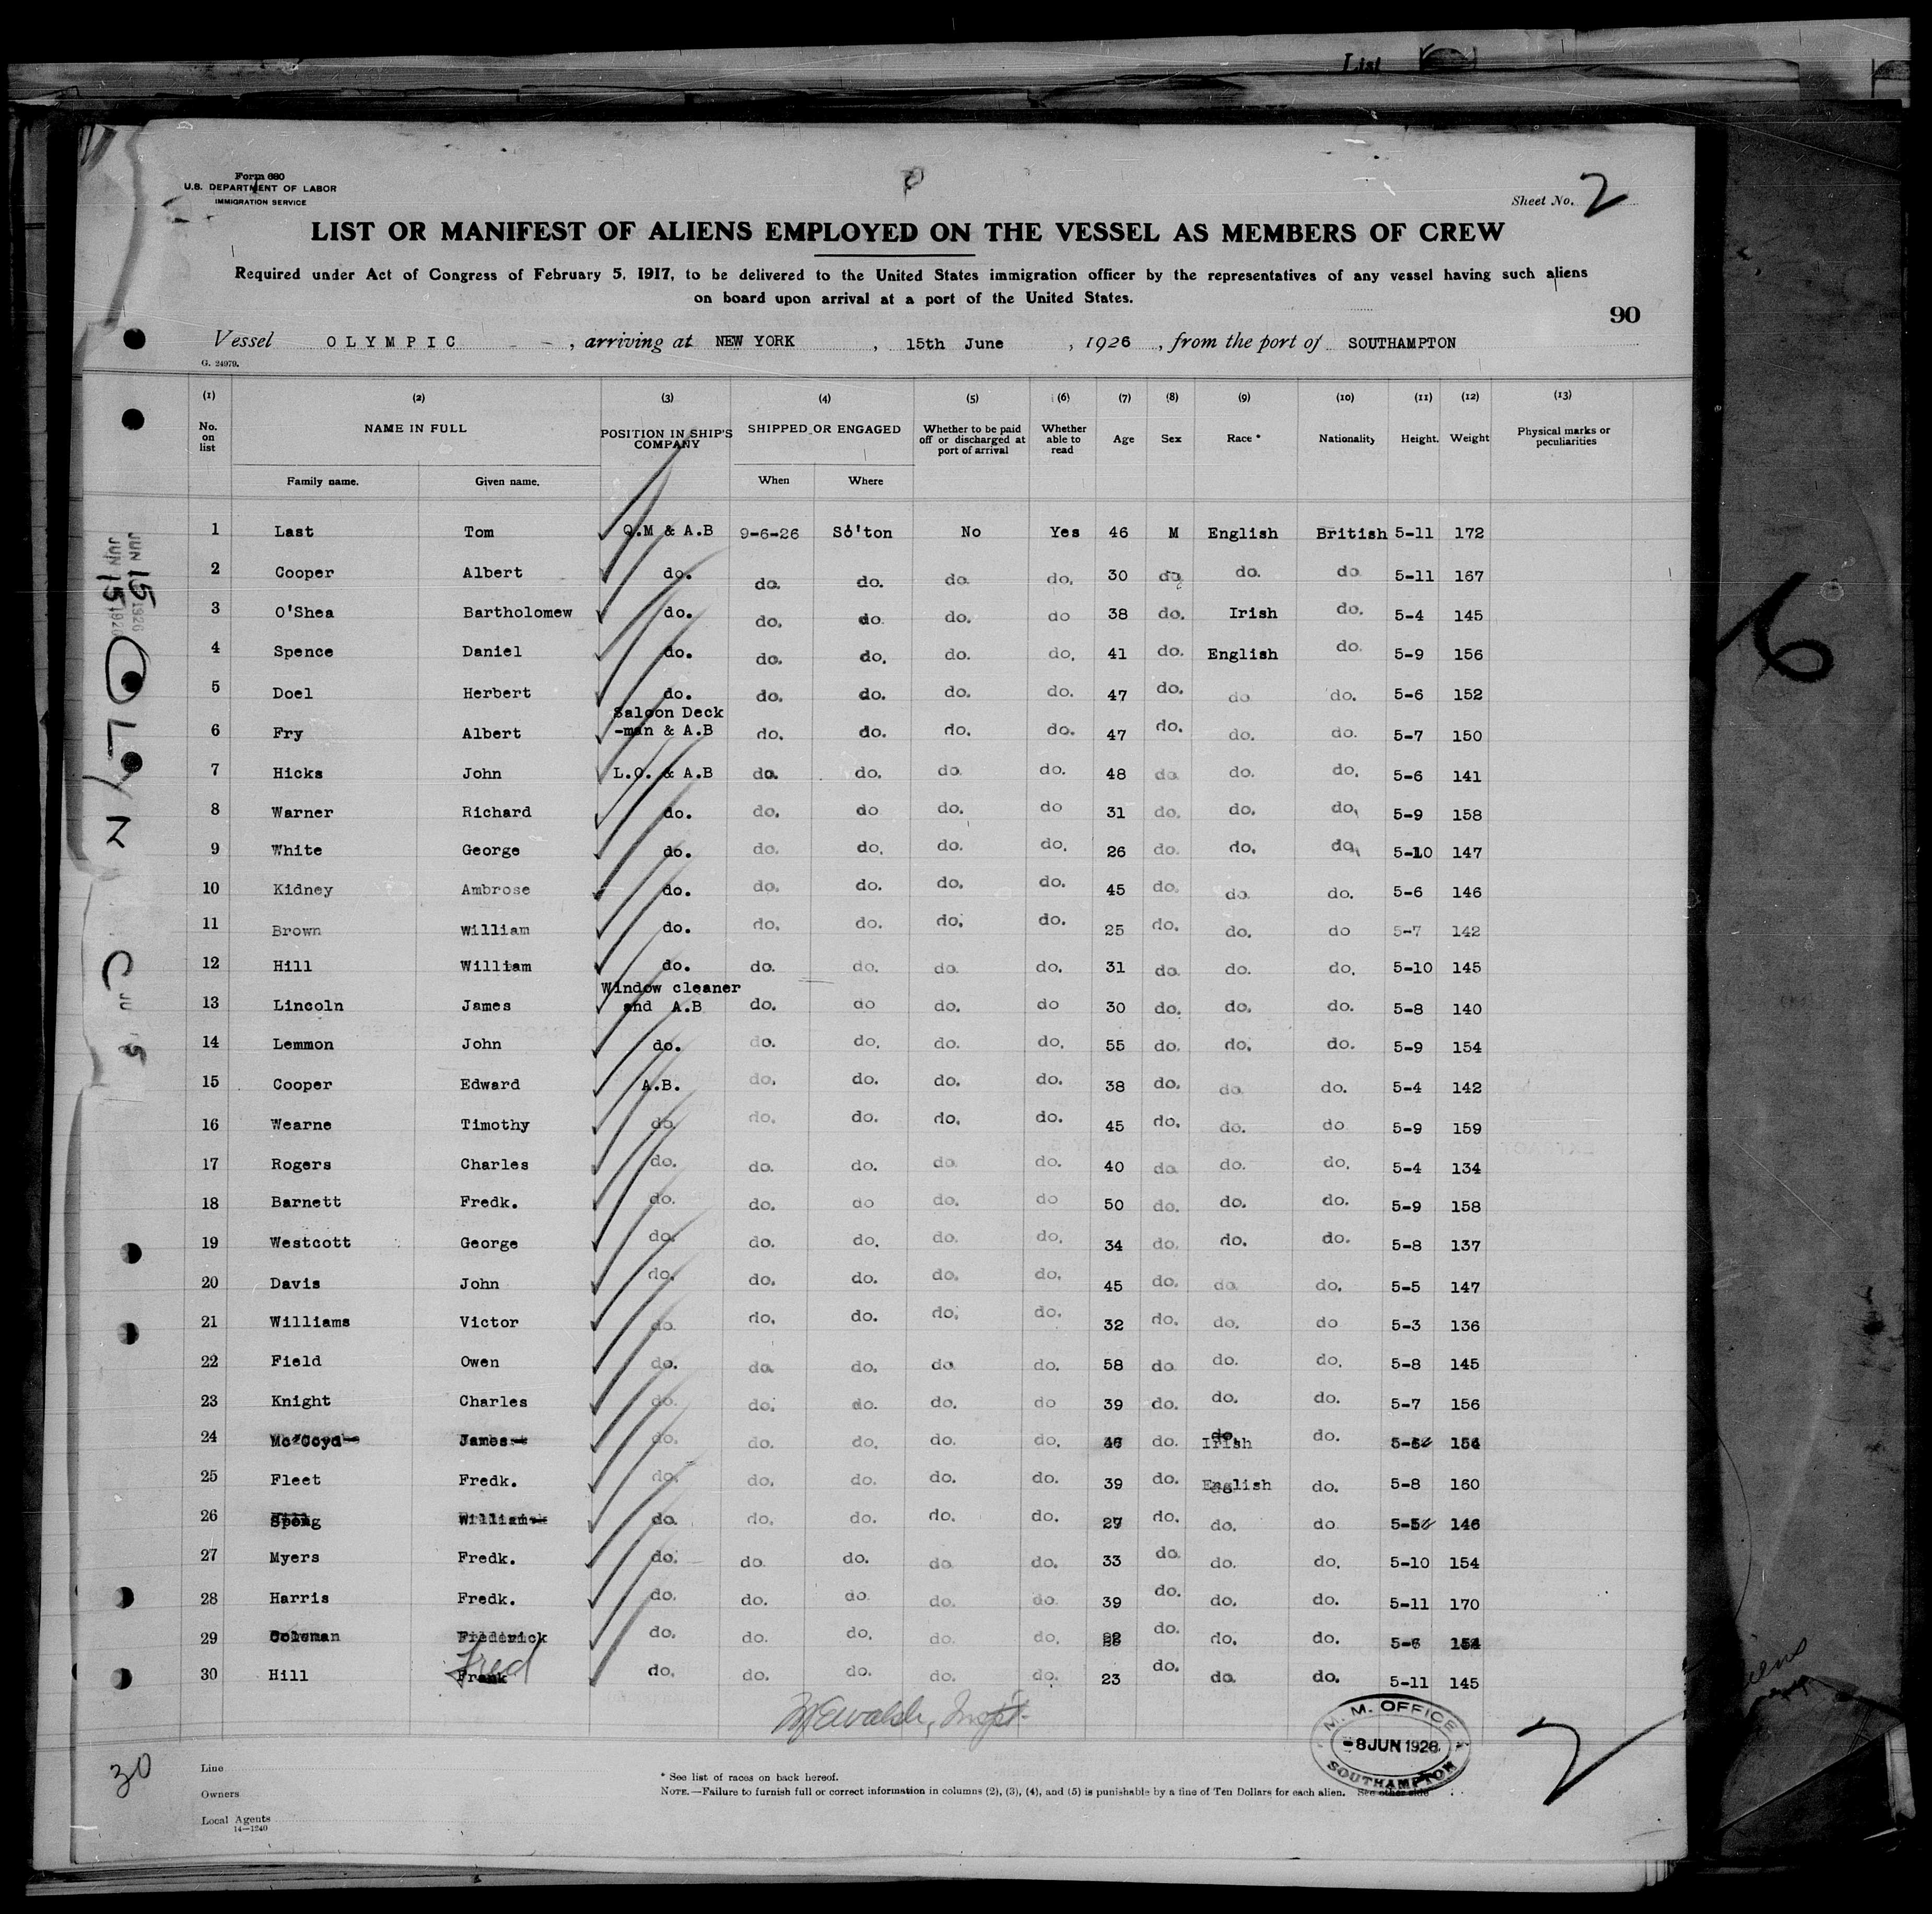 List
Form 680
U.S. DEPARTMENT OF LABOR
IMMIGRATION SERVICE
Sheet No. 2
LIST OR MANIFEST OF ALIENS EMPLOYED ON THE VESSEL AS MEMBERS OF CREW
Required under Act of Congress of February 5, 1917, to be delivered to the United States immigration officer by the representatives of any vessel having such aliens
on board upon arrival at a port of the United States.
90
Vessel OLYMPIC, arriving at NEW YORK, 15th June, 1926, from the port of SOUTHAMPTON
G. 24979.
(1) (2) (3) (4) (5) (6) (7) (8) (9) (10) (11) (12) (13)
No. on list NAME IN FULL POSITION IN SHIP'S COMPANY SHIPPED OR ENGAGED Whether to be paid off or discharged at port of arrival Whether able to read Age Sex Race * Nationality Height. Weight Physical marks or peculiarities
Family name. Given name. When Where
1 Last Tom Q.M & A.B 9-6-26 So'ton No Yes 46 M English British 5-11 172
2 Cooper Albert do. do. do. do. do. 30 do do. do 5-11 167
3 O'Shea Bartholomew do. do. do. do. do 38 do. Irish do. 5-4 145
4 Spence Daniel do. do. do. do. do. 41 do. English do. 5-9 156
5 Doel Herbert do. do. do. do. do. 47 do. do do. 5-6 152
6 Fry Albert Saloon Deck -man & A.B do. do. do. do. 47 do. do. do. 5-7 150
7 Hicks John L.O. & A.B do. do. do. do. 48 do. do. do. 5-6 141
8 Warner Richard do. do. do do. do 31 do. do. do. 5-9 158
9 White George do. do. do. do. do. 26 do. do. do. 5-10 147
10 Kidney Ambrose do. do. do. do. do. 45 do. do. do. 5-6 146
11 Brown William do. do. do. do. do. 25 do. do. do 5-7 142
12 Hill William do. do. do. do. do. 31 do. do. do. 5-10 145
13 Lincoln James Window cleaner and A.B do. do do. do 30 do. do. do. 5-8 140
14 Lemmon John do. do. do. do. do. 55 do. do. do. 5-9 154
15 Cooper Edward A.B. do. do. do. do. 38 do. do do. 5-4 142
16 Wearne Timothy do. do. do. do. do. 45 do. do. do 5-9 159
17 Rogers Charles do. do. do. do. do. 40 do. do. do. 5-4 134
18 Barnett Fredk. do. do. do do. do 50 do. do. do. 5-9 158
19 Westcott George do. do. do. do. do. 34 do. do. do. 5-8 137
20 Davis John do. do. do. do. do. 45 do. do. do. 5-5 147
21 Williams Victor do. do. do. do. do. 32 do. do. do 5-3 136
22 Field Owen do. do. do. do. do. 58 do do. do. 5-8 145
23 Knight Charles do. do. do. do. do 39 do. do. do. 5-7 156
24 James do. do. do. do. do. do. Irish do. 154
25 Fleet Fredk. do. do. do. do. do. 39 do. English do. 5-8 160
26 William do. do. do. do. do. do. do. do 146
27 Myers Fredk. do. do. do. do. do. 33 do. do. do. 5-10 154
28 Harris Fredk. do. do. do do. do. 39 do. do. do. 5-11 170
29 do. do. do. do. do. do. do. do. 5-6
30 Hill Frank Fred do. do. do. do. do. 23 do. do. do. 5-11 145
M. M. OFFICE
8 JUN 1926
SOUTHAMPTON
2
30
Line
Owners
Local Agents
14—1240
* See list of races on back hereof.
NOTE.—Failure to furnish full or correct information in columns (2), (3), (4), and (5) is punishable by a fine of Ten Dollars for each alien. See other side
JUN 15 1926
JUN 15 1926